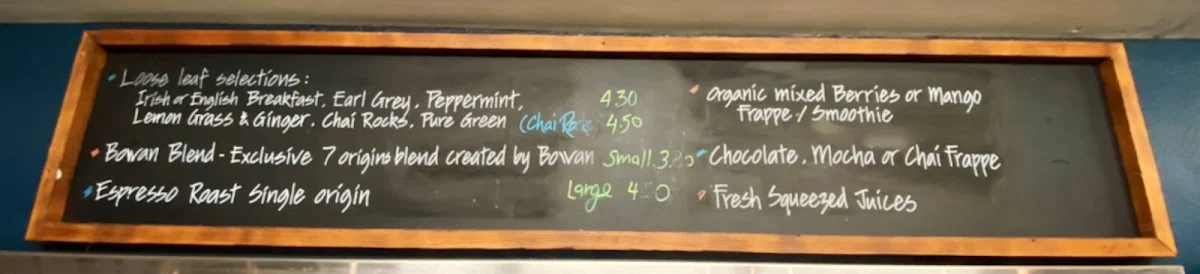 Loose leaf selections:
Irish or English Breakfast, Earl Grey, Peppermint, 4.30
Lemon Grass & Ginger, Chai Rocks, Pure Green (Chai 4.50
Bowan Blend - Exclusive 7 origins blend created by Bowan Small
Espresso Roast Single origin Large
Organic mixed Berries or Mango
Frappe / Smoothie
Chocolate, Mocha or Chai Frappe
Fresh Squeezed Juices